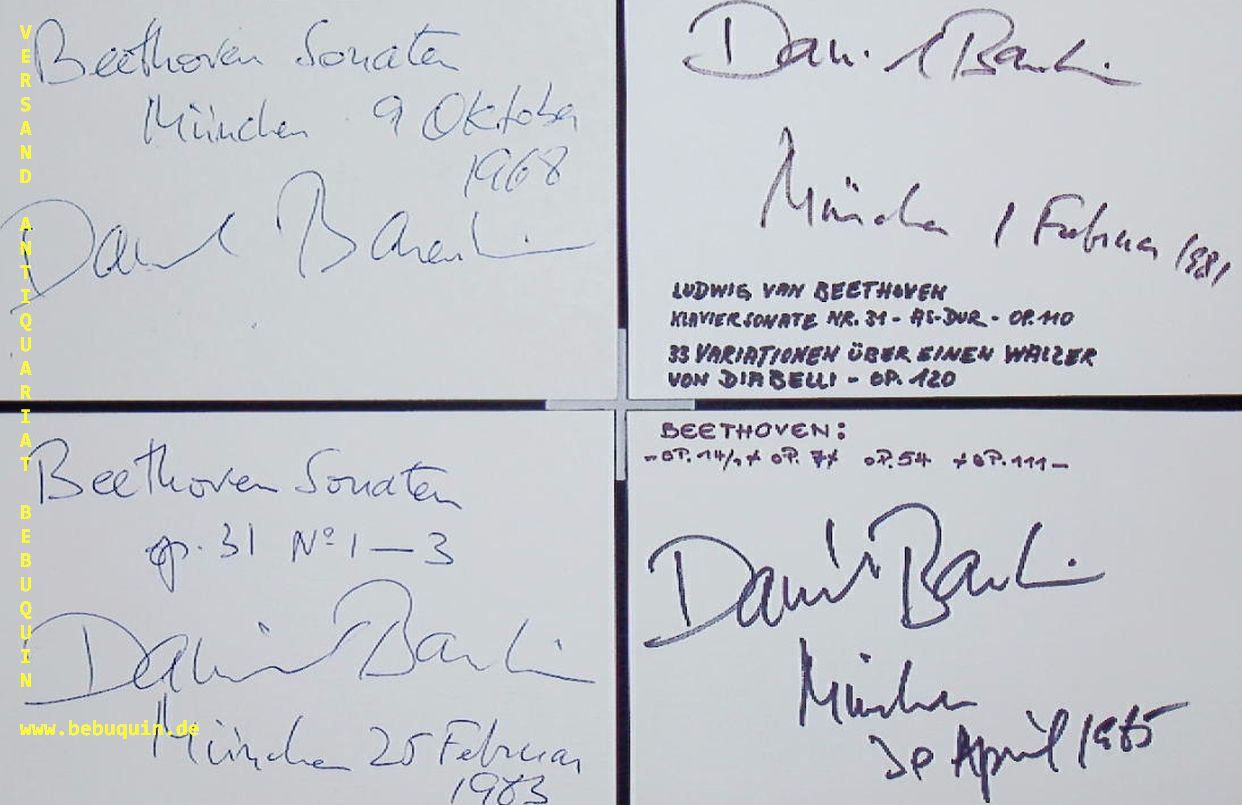 Beethoven Sonaten
München 9 Oktober
1968
Daniel Barenboim
Daniel Barenboim
München 1 Februar 1981
LUDWIG VAN BEETHOVEN
KLAVIERSONATE NR. 31 - AS-DUR - OP. 110
33 VARIATIONEN ÜBER EINEN WALZER
VON DIABELLI - OP. 120
Beethoven Sonaten
op. 31 Nº 1 — 3
Daniel Barenboim
München 25 Februar
1983
BEETHOVEN:
OP. 7 + OP. 54 + OP. 111 -
Daniel Barenboim
München
30 April 1985
VERSAND ANTIQUARIAT BEBUQUIN
www.bebuquin.de